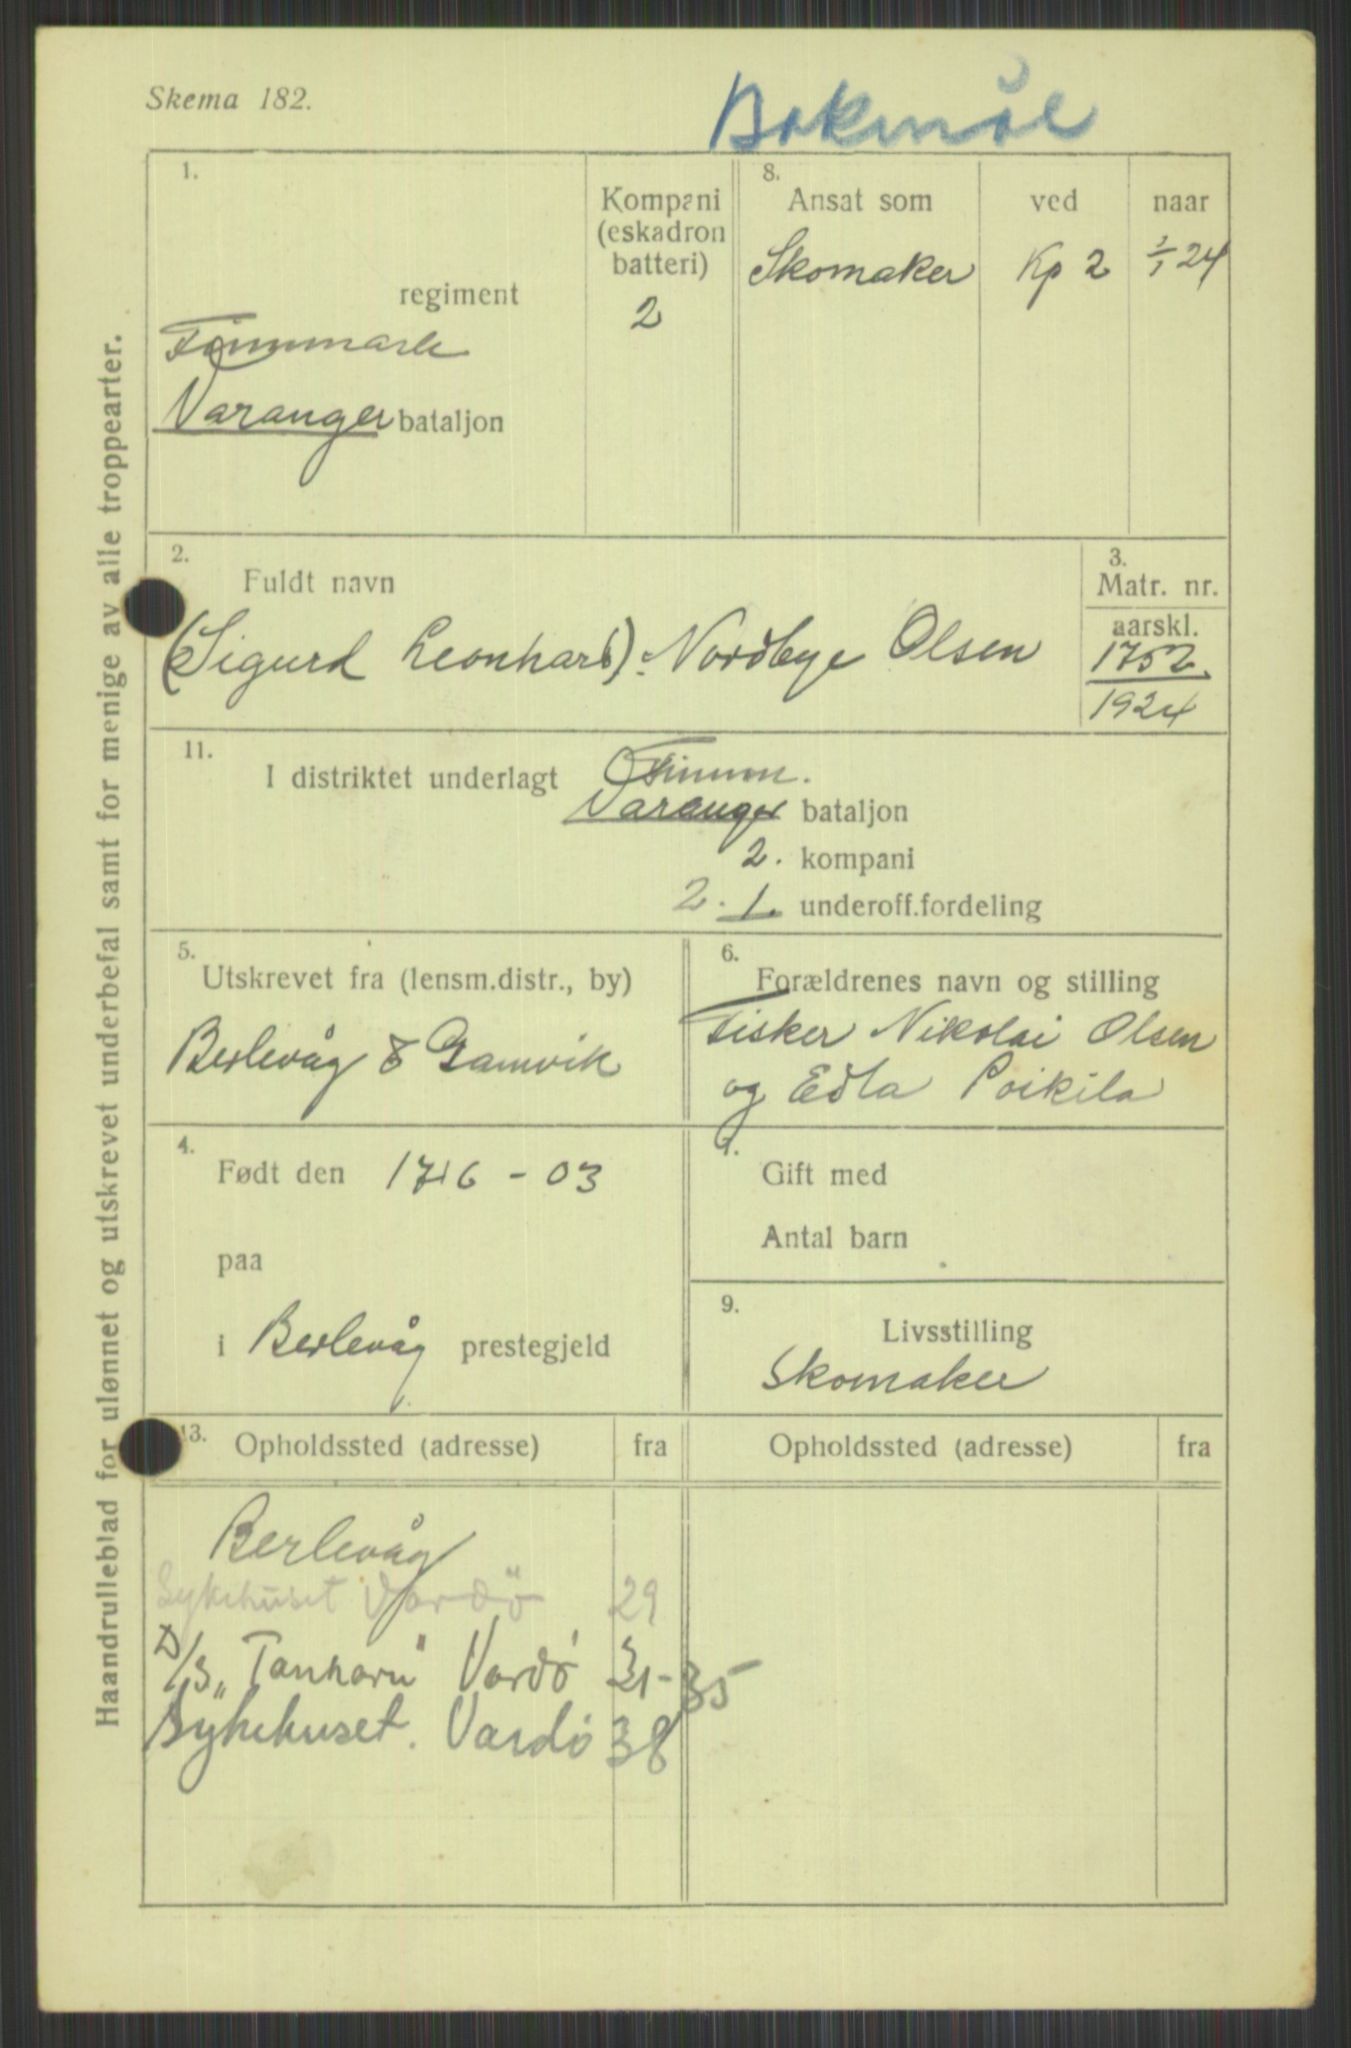 Skema 182.
Bokmål
1.
regiment
Finnmark
Varanger bataljon
Kompani
(eskadron
batteri)
2
8.
Ansat som
Skomaker
ved
Kp 2
naar
1/1 24
2.
Fuldt navn
(Sigurd Leonhard). Nordbye Olsen
3.
Matr. nr.
aarskl.
1752
1924
11.
I distriktet underlagt
Finnm.
Varanger bataljon
2. kompani
2. 1. underoff.fordeling
5.
Utskrevet fra (lensm.distr., by)
Berlevåg & Gamvik
6.
Forældrenes navn og stilling
Fisker Nikolai Olsen
og Edla Poikila
4.
Født den 17/6 - 03
paa
i Berlevåg prestegjeld
Gift med
Antal barn
9.
Livsstilling
Skomaker
13. Opholdssted (adresse) fra Opholdssted (adresse) fra
Berlevåg
Sykehuset Vardö 29
D/S „Tanhorn" Vardø 31-35
Sykehuset. Vardø 38
Haandrulleblad for ulønnet og utskrevet underbefal samt for menige av alle troppearter.